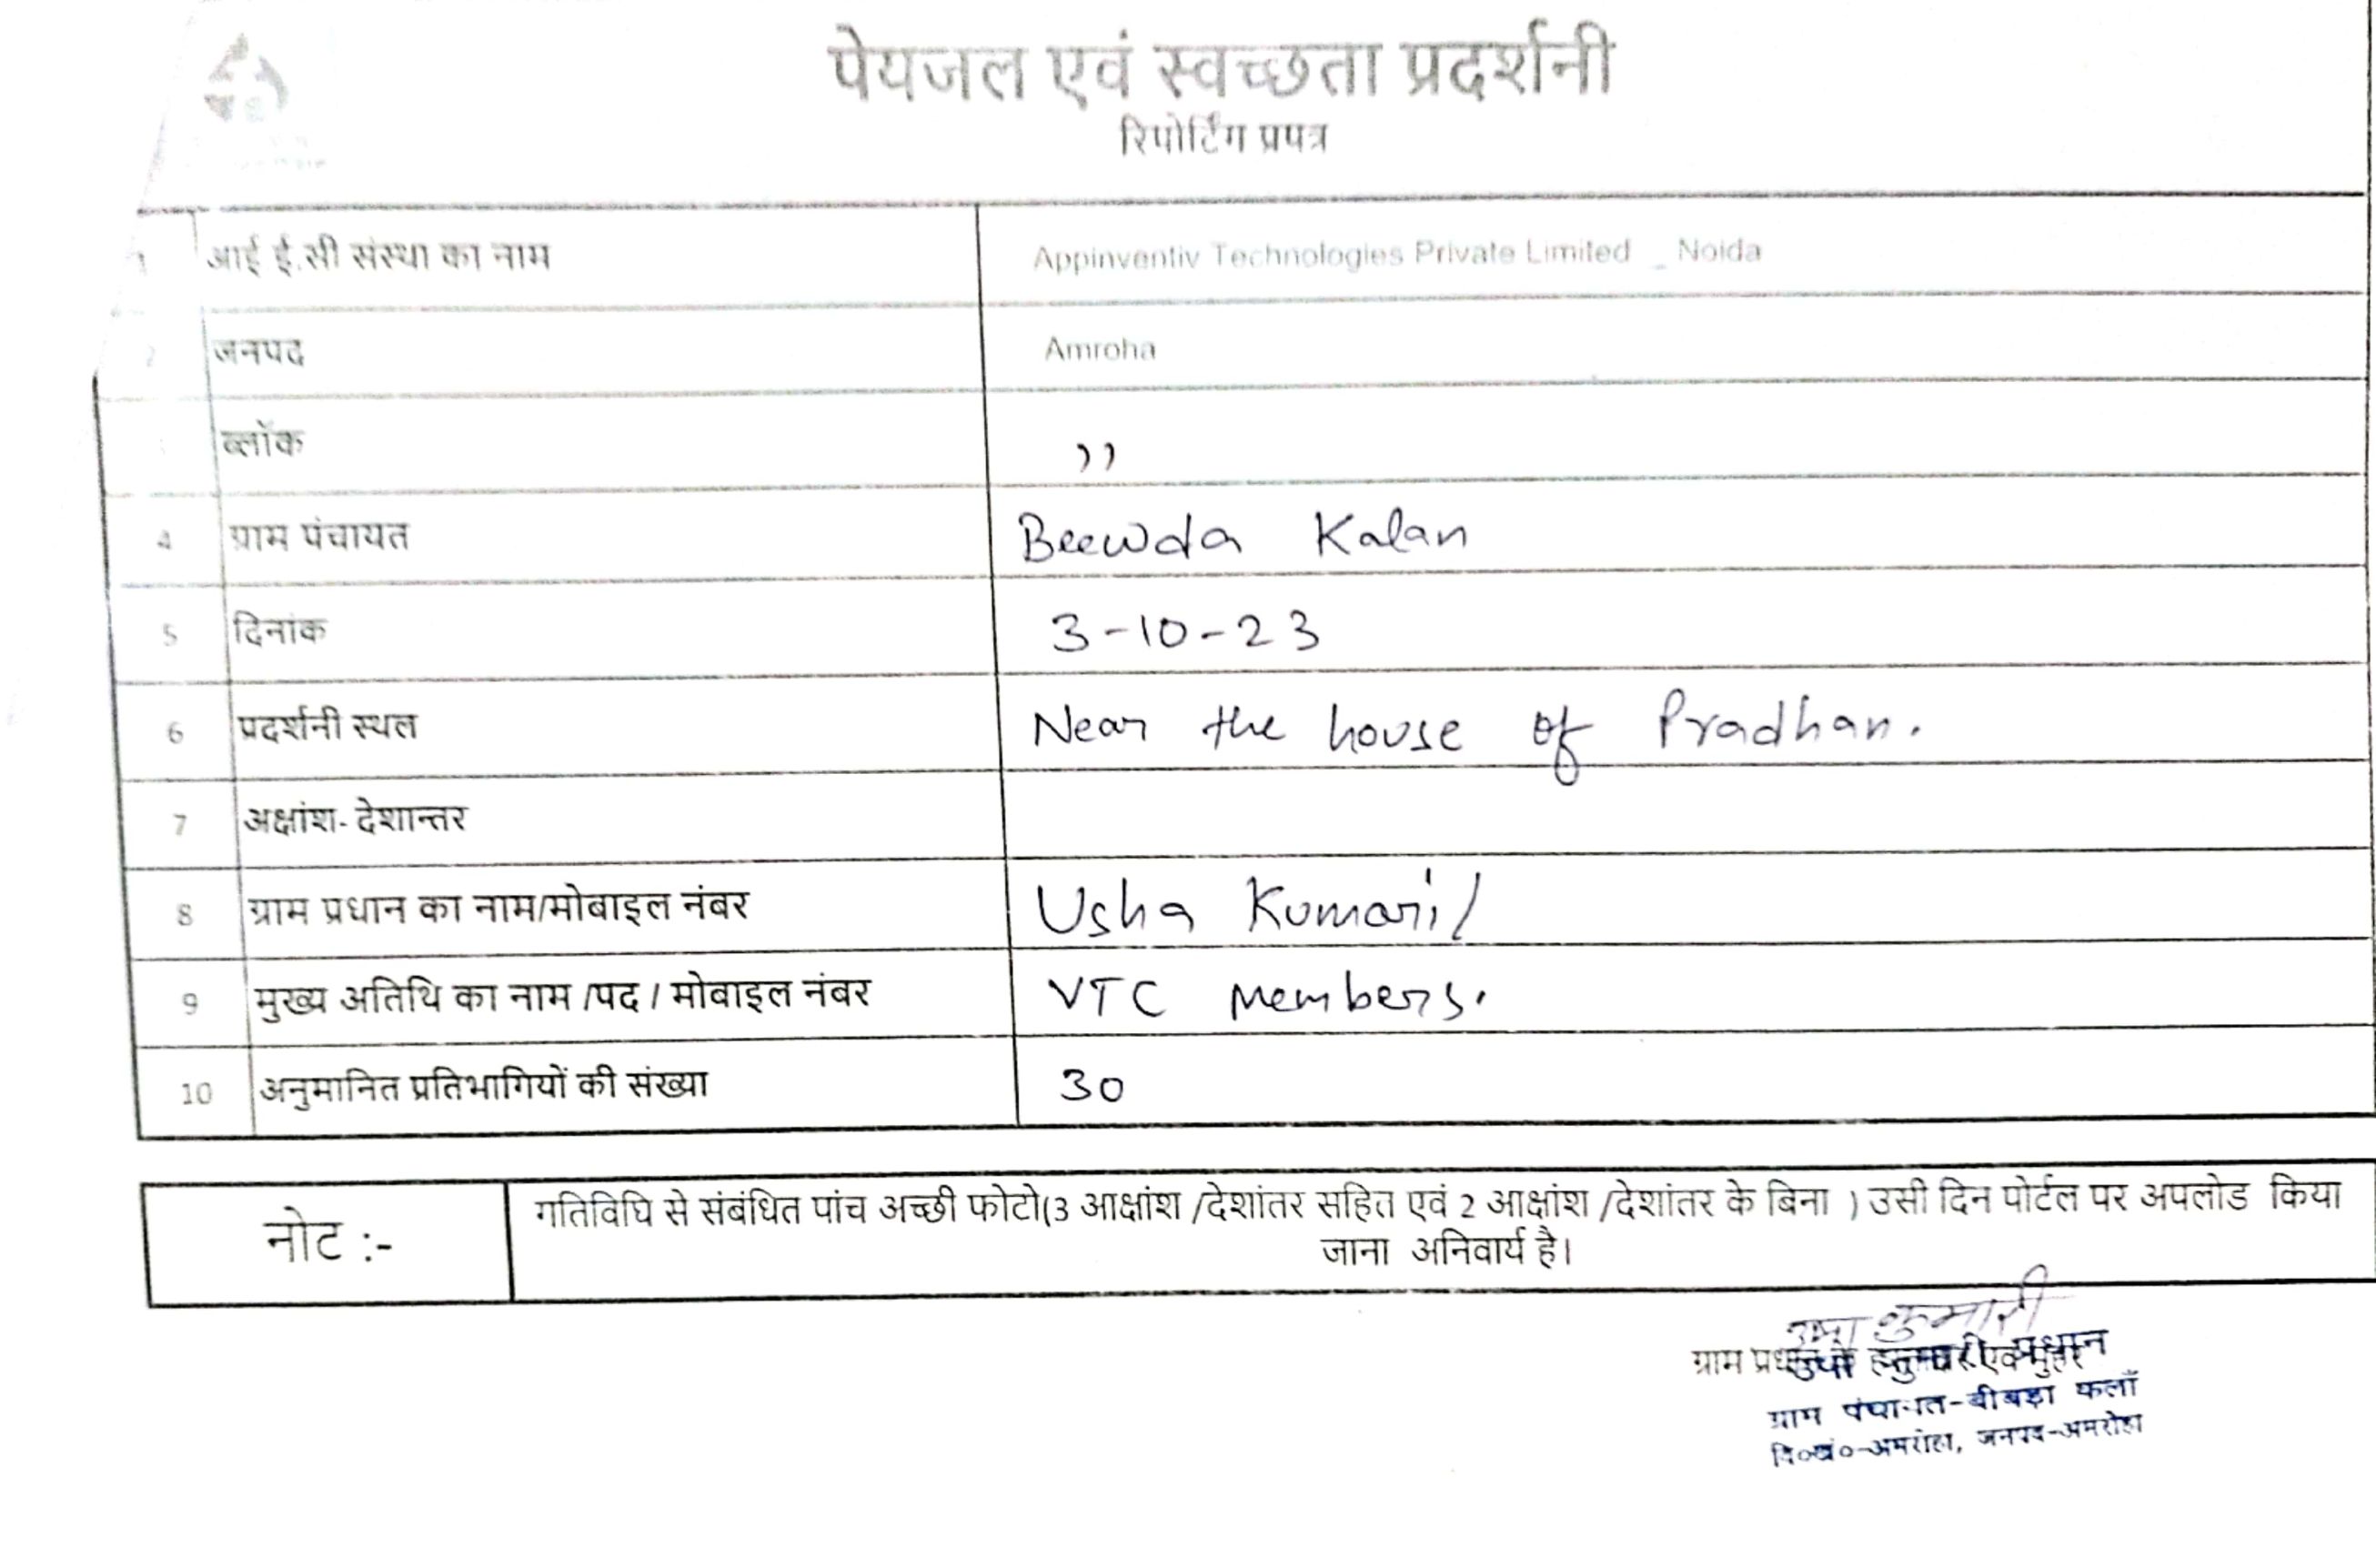 पेयजल एवं स्वच्छता प्रदर्शनी
रिपोर्टिंग प्रपत्र
1 आई ई.सी संस्था का नाम Appinventiv Technologies Private Limited _ Noida
2 जनपद Amroha
ब्लॉक ,,
4 ग्राम पंचायत Beewda Kalan
5 दिनांक 3-10-23
6 प्रदर्शनी स्थल Near the house of Pradhan.
7 अक्षांश- देशान्तर
8 ग्राम प्रधान का नाम/मोबाइल नंबर Usha Kumari/
9 मुख्य अतिथि का नाम /पद / मोबाइल नंबर VTC Members.
10 अनुमानित प्रतिभागियों की संख्या 30
नोट :- गतिविधि से संबंधित पांच अच्छी फोटो(3 आक्षांश /देशांतर सहित एवं 2 आक्षांश /देशांतर के बिना ) उसी दिन पोर्टल पर अपलोड किया
जाना अनिवार्य है।
उषा कुमारी
ग्राम
ग्राम पंचायत-बीबड़ा कलाँ
वि०खं०-अमरोहा, जनपद-अमरोहा